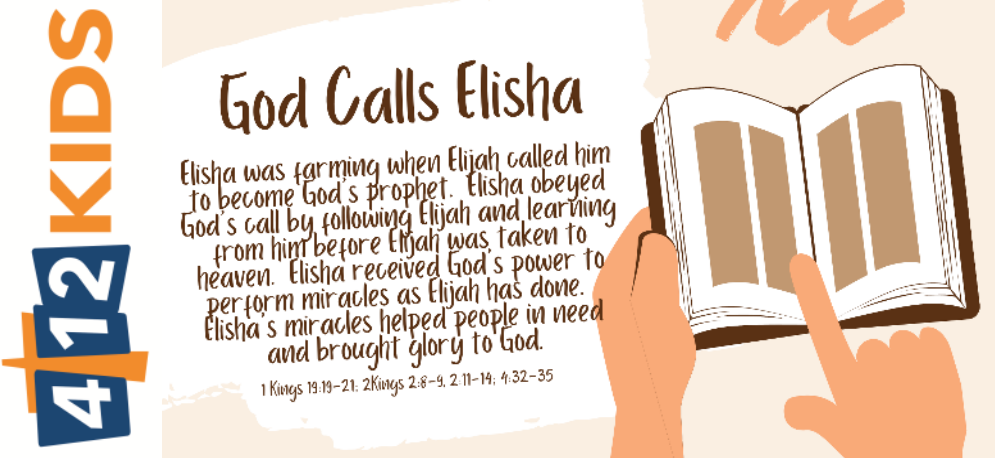 412KIDS
God Calls Elisha
Elisha was farming when Elijah called him
to become God's prophet. Elisha obeyed
God's call by following Elijah and learning
from him before Elijah was taken to
heaven. Elisha received God's power to
perform miracles as Elijah has done.
Elisha's miracles helped people in need
and brought glory to God.
1 Kings 19:19-21; 2Kings 2:8-9, 2:11-14; 4:32-35